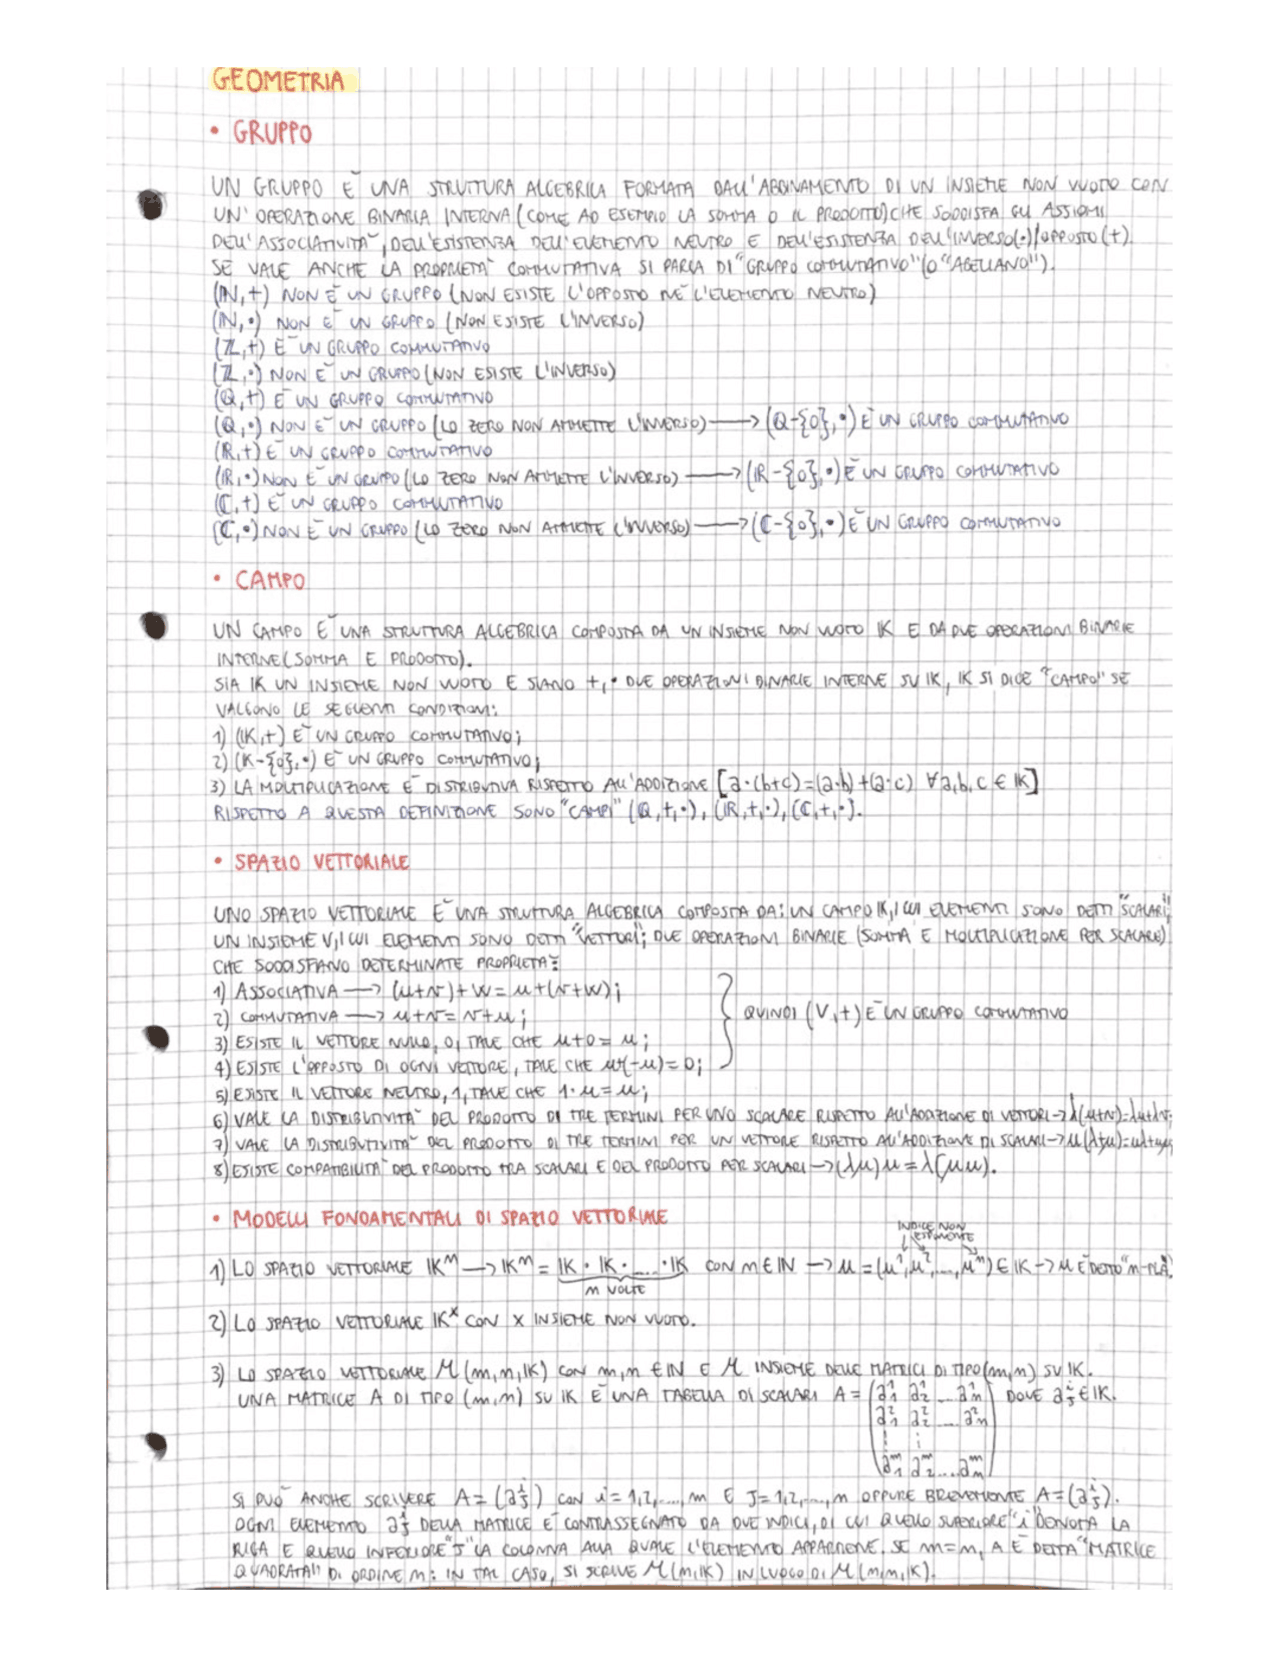 GEOMETRIA
• GRUPPO
UN GRUPPO È UNA STRUTTURA ALGEBRICA FORMATA DALL'ABBINAMENTO DI UN INSIEME NON VUOTO CON
UN'OPERAZIONE BINARIA INTERNA (COME AD ESEMPIO LA SOMMA O IL PRODOTTO) CHE SODDISFA GLI ASSIOMI
DELL'ASSOCIATIVITÀ, DELL'ESISTENZA DELL'ELEMENTO NEUTRO E DELL'ESISTENZA DELL'INVERSO(•)/OPPOSTO(+).
SE VALE ANCHE LA PROPRIETÀ COMMUTATIVA SI PARLA DI "GRUPPO COMMUTATIVO" (O "ABELIANO").
(ℕ,+) NON È UN GRUPPO (NON ESISTE L'OPPOSTO NÉ L'ELEMENTO NEUTRO)
(ℕ,•) NON È UN GRUPPO (NON ESISTE L'INVERSO)
(ℤ,+) È UN GRUPPO COMMUTATIVO
(ℤ,•) NON È UN GRUPPO (NON ESISTE L'INVERSO)
(ℚ,+) È UN GRUPPO COMMUTATIVO
(ℚ,•) NON È UN GRUPPO (LO ZERO NON AMMETTE L'INVERSO) → (ℚ-{0},•) È UN GRUPPO COMMUTATIVO
(ℝ,+) È UN GRUPPO COMMUTATIVO
(ℝ,•) NON È UN GRUPPO (LO ZERO NON AMMETTE L'INVERSO) → (ℝ-{0},•) È UN GRUPPO COMMUTATIVO
(ℂ,+) È UN GRUPPO COMMUTATIVO
(ℂ,•) NON È UN GRUPPO (LO ZERO NON AMMETTE L'INVERSO) → (ℂ-{0},•) È UN GRUPPO COMMUTATIVO
• CAMPO
UN CAMPO È UNA STRUTTURA ALGEBRICA COMPOSTA DA UN INSIEME NON VUOTO IK E DA DUE OPERAZIONI BINARIE
INTERNE (SOMMA E PRODOTTO).
SIA IK UN INSIEME NON VUOTO E SIANO +,• DUE OPERAZIONI BINARIE INTERNE SU IK, IK SI DICE "CAMPO" SE
VALGONO LE SEGUENTI CONDIZIONI:
1) (IK,+) È UN GRUPPO COMMUTATIVO;
2) (K-{0},•) È UN GRUPPO COMMUTATIVO;
3) LA MOLTIPLICAZIONE È DISTRIBUTIVA RISPETTO ALL'ADDIZIONE [a·(b+c)=(a·b)+(a·c) ∀a,b,c ∈ IK]
RISPETTO A QUESTA DEFINIZIONE SONO "CAMPI" (ℚ,+,•), (ℝ,+,•), (ℂ,+,•).
• SPAZIO VETTORIALE
UNO SPAZIO VETTORIALE È UNA STRUTTURA ALGEBRICA COMPOSTA DA: UN CAMPO IK, I CUI ELEMENTI SONO DETTI "SCALARI";
UN INSIEME V, I CUI ELEMENTI SONO DETTI "VETTORI"; DUE OPERAZIONI BINARIE (SOMMA E MOLTIPLICAZIONE PER SCALARE)
CHE SODDISFANO DETERMINATE PROPRIETÀ:
1) ASSOCIATIVA → (u+v)+w=u+(v+w);
2) COMMUTATIVA → u+v=v+u;
QUINDI (V,+) È UN GRUPPO COMMUTATIVO
3) ESISTE IL VETTORE NULLO, 0, TALE CHE u+0=u;
4) ESISTE L'OPPOSTO DI OGNI VETTORE, TALE CHE u+(-u)=0;
5) ESISTE IL VETTORE NEUTRO, 1, TALE CHE 1·u=u;
6) VALE LA DISTRIBUTIVITÀ DEL PRODOTTO DI TRE TERMINI PER UNO SCALARE RISPETTO ALL'ADDIZIONE DI VETTORI → λ(u+v)=λu+λv;
7) VALE LA DISTRIBUTIVITÀ DEL PRODOTTO DI TRE TERMINI PER UN VETTORE RISPETTO ALL'ADDIZIONE DI SCALARI → u(λ+μ)=uλ+uμ;
8) ESISTE COMPATIBILITÀ DEL PRODOTTO TRA SCALARI E DEL PRODOTTO PER SCALARI → (λμ)u=λ(μu).
• MODELLI FONDAMENTALI DI SPAZIO VETTORIALE
INDICE NON
ESPONENTE
1) LO SPAZIO VETTORIALE IKⁿ → IKⁿ = IK · IK · .... · IK CON n ∈ IN → u=(u¹,u²,...,uⁿ) ∈ IK → u È DETTO "n-PLA".
n VOLTE
2) LO SPAZIO VETTORIALE IKˣ CON X INSIEME NON VUOTO.
3) LO SPAZIO VETTORIALE M(m,n,IK) CON m,n ∈ IN E M INSIEME DELLE MATRICI DI TIPO (m,n) SU IK.
UNA MATRICE A DI TIPO (m,n) SU IK È UNA TABELLA DI SCALARI A = (a¹₁ a¹₂ ... a¹ₙ) DOVE aⁱⱼ ∈ IK.
a²₁ a²₂ .... a²ₙ
⋮ ⋮
aᵐ₁ aᵐ₂ ... aᵐₙ
SI PUÒ ANCHE SCRIVERE A=(aⁱⱼ) CON i=1,2,...,m E J=1,2,...,n OPPURE BREVEMENTE A=(aⁱⱼ).
OGNI ELEMENTO aⁱⱼ DELLA MATRICE È CONTRASSEGNATO DA DUE INDICI, DI CUI QUELLO SUPERIORE "i" DENOTA LA
RIGA E QUELLO INFERIORE "J" LA COLONNA ALLA QUALE L'ELEMENTO APPARTIENE. SE m=n, A È DETTA "MATRICE
QUADRATA" DI ORDINE n: IN TAL CASO, SI SCRIVE M(n,IK) IN LUOGO DI M(n,n,IK).